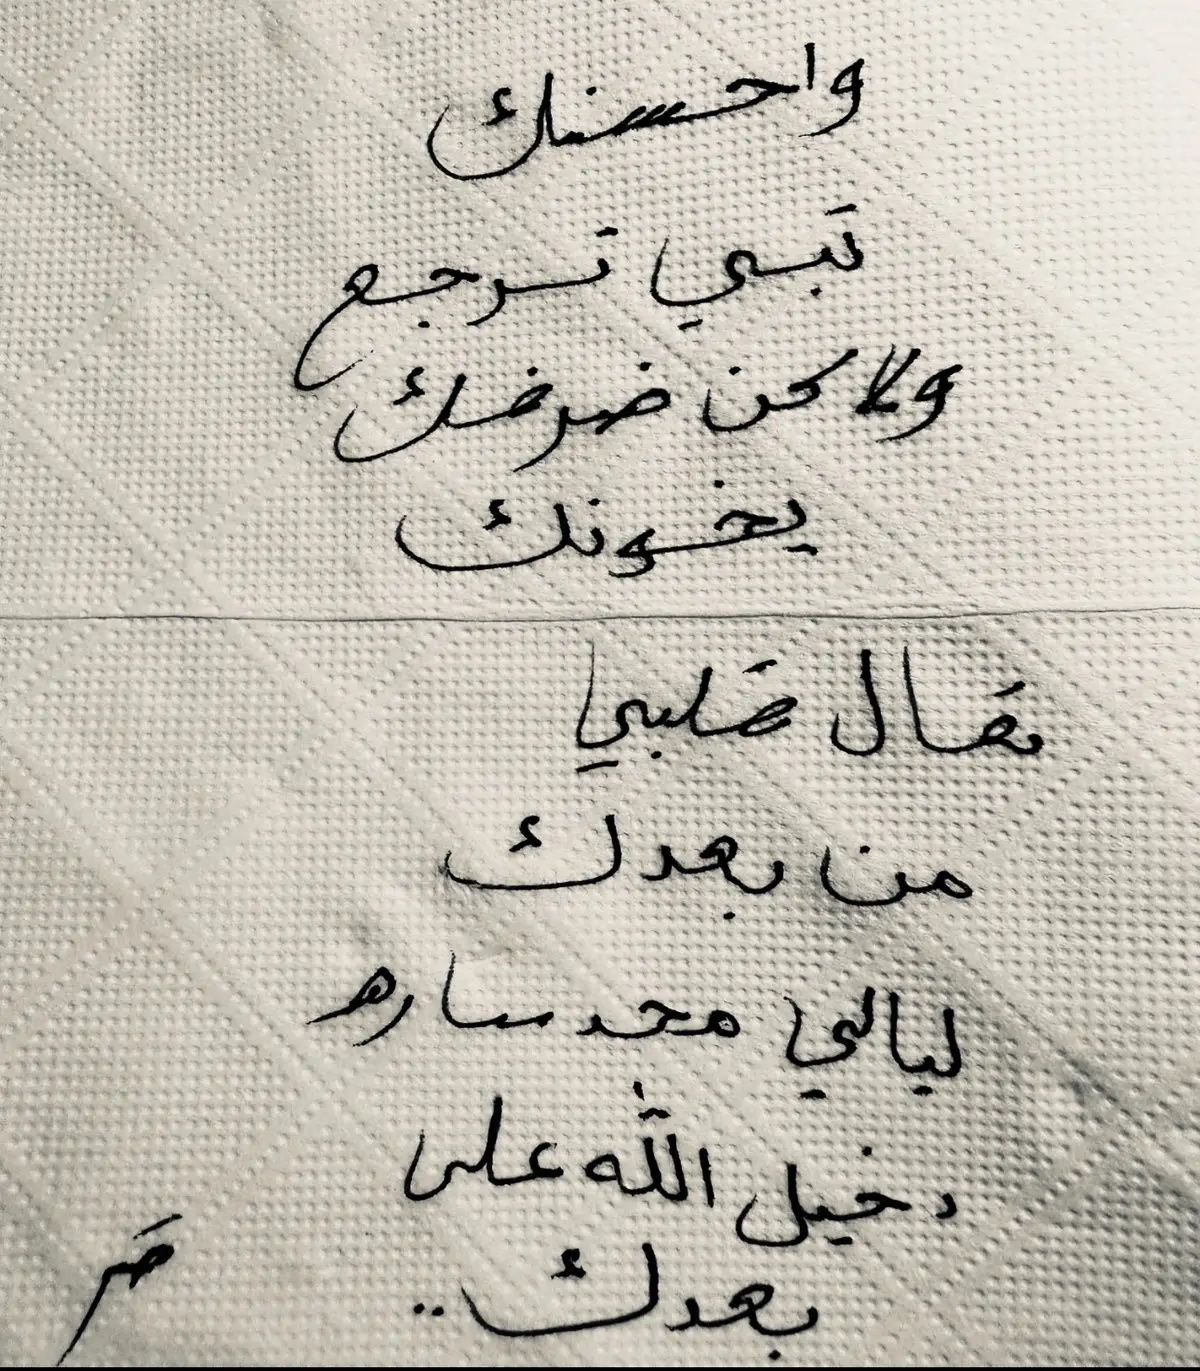 واحسنك
تبي ترجع
ولاكن ضرفك
يخونك
تعال قلبي
من بعدك
ليالي محد ساره
دخيل الله على
بعدك..